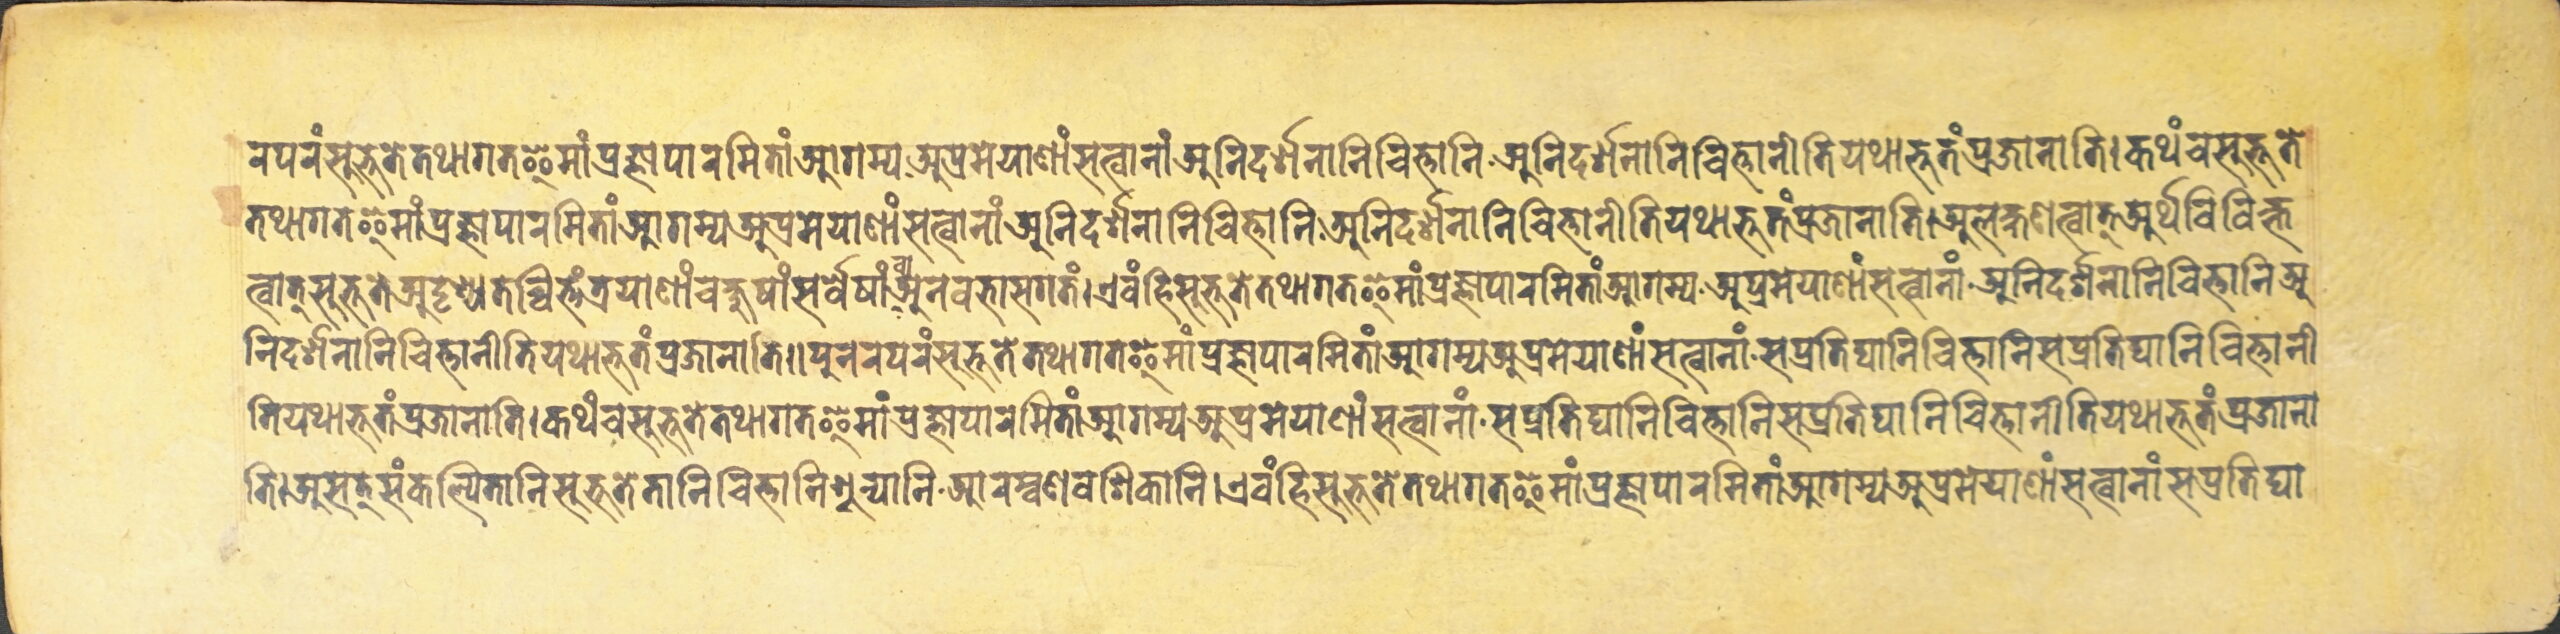 रपरं सुभूते तथागत इमां प्रज्ञापारमितां आगम्य अप्रमेयाणां सत्वानां अनिदर्शनानि चित्तानि· अनिदर्शनानि चित्तानीति यथाभुतं प्रजानाति। कथं च सुभूते
तथागत इमां प्रज्ञापारमितां आगम्य अप्रमेयाणां सत्वानां अनिदर्शनानि चित्तानि· अनिदर्शनानि चित्तानीति यथाभुतं प्रजानाति। अलक्षणत्वात् अर्थविविक्त
त्वात् सुभूते अदृश्यतच्चित्तं त्रयाणां चक्षुषां सर्वेषां वा अनवभासगतं। एवं हि सुभूते तथागत इमां प्रज्ञापारमितां आगम्य· अप्रमेयाणां सत्वानां· अनिदर्शनानि चित्तानि अ
निदर्शनानि चित्तानीति यथाभुतं प्रजानाति॥ पुनरपरं सुभूते तथागत इमां प्रज्ञापारमितां आगम्य अप्रमेयाणां सत्वानां· सप्रतिघानि चित्तानि सप्रतिघानि चित्तानी
ति यथाभुतं प्रजानाति। कथं च सुभूते तथागत इमां प्रज्ञापारमितां आगम्य अप्रमेयाणां सत्वानां· सप्रतिघानि चित्तानि सप्रतिघानि चित्तानीति यथाभुतं प्रजाना
ति। असत् संकल्पितानि सुभूते तानि चित्तानि शून्यानि· आरम्बणवशिकानि। एवं हि सुभूते तथागत इमां प्रज्ञापारमितां आगम्य अप्रमेयाणां सत्वानां सप्रतिघा